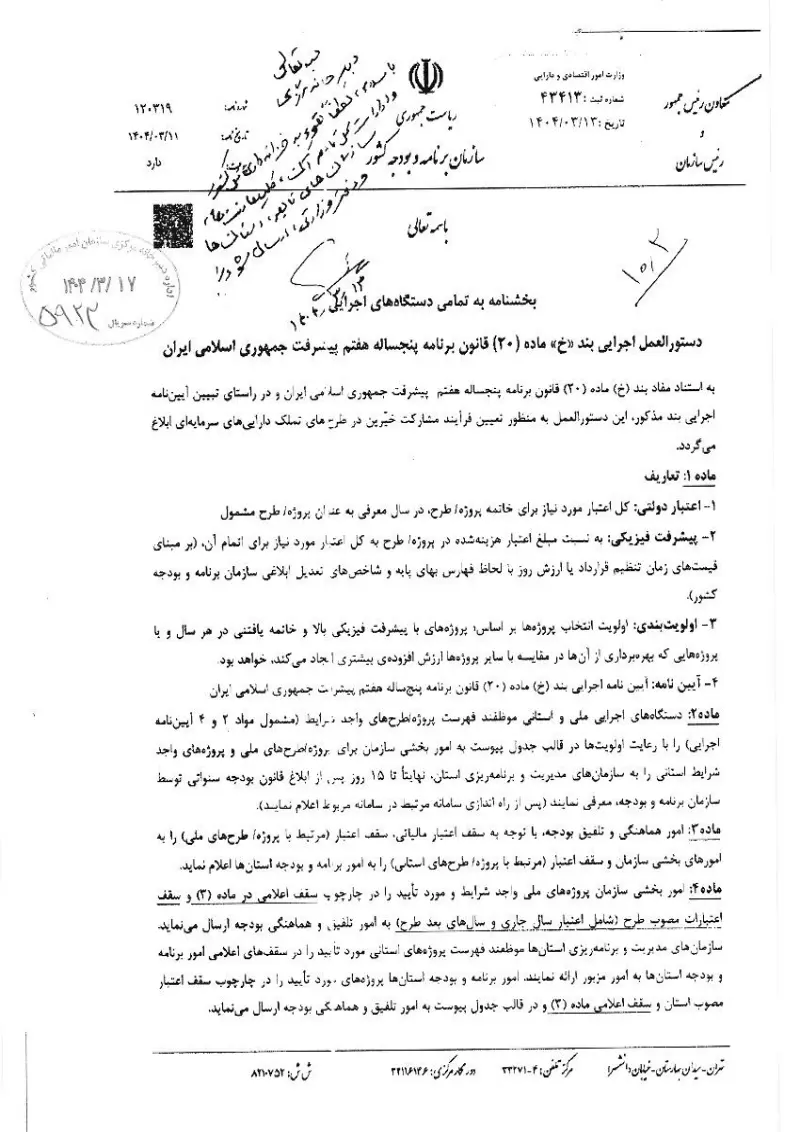 معاون رئیس جمهور
و
رئیس سازمان
وزارت امور اقتصادی و دارایی
شماره ثبت : ۴۳۴۱۳
تاریخ : ۱۴۰۴/۰۳/۱۳
ریاست جمهوری
سازمان برنامه و بودجه کشور
شماره نامه: ۱۲۰۳۱۹
تاریخ نامه: ۱۴۰۴/۰۳/۱۱
پیوست: دارد
باسمه تعالی
بخشنامه به تمامی دستگاه‌های اجرایی
دستورالعمل اجرایی بند «خ» ماده (۲۰) قانون برنامه پنجساله هفتم پیشرفت جمهوری اسلامی ایران
به استناد مفاد بند (خ) ماده (۲۰) قانون برنامه پنجساله هفتم پیشرفت جمهوری اسلامی ایران و در راستای تبیین آیین‌نامه
اجرایی بند مذکور، این دستورالعمل به منظور تعیین فرآیند مشارکت خیّرین در طرح های تملک دارایی‌های سرمایه‌ای ابلاغ
می‌گردد.
ماده ۱: تعاریف
۱- اعتبار دولتی: کل اعتبار مورد نیاز برای خاتمه پروژه/ طرح، در سال معرفی به عنوان پروژه/ طرح مشمول
۲- پیشرفت فیزیکی: به نسبت مبلغ اعتبار هزینه‌شده در پروژه/ طرح به کل اعتبار مورد نیاز برای اتمام آن، (بر مبنای
قیمت‌های زمان تنظیم قرارداد یا ارزش روز با لحاظ فهارس بهای پایه و شاخص‌های تعدیل ابلاغی سازمان برنامه و بودجه
کشور).
۳- اولویت‌بندی: اولویت انتخاب پروژه‌ها بر اساس؛ پروژه‌های با پیشرفت فیزیکی بالا و خاتمه یافتنی در هر سال و یا
پروژه‌هایی که بهره‌برداری از آن‌ها در مقایسه با سایر پروژه‌ها ارزش افزوده‌ی بیشتری ایجاد می‌کند، خواهد بود.
۴- آیین نامه: آیین نامه اجرایی بند (خ) ماده (۲۰) قانون برنامه پنج‌ساله هفتم پیشرفت جمهوری اسلامی ایران
ماده۲: دستگاه‌های اجرایی ملی و استانی موظفند فهرست پروژه/طرح‌های واجد شرایط (مشمول مواد ۲ و ۴ آیین‌نامه
اجرایی) را با رعایت اولویت‌ها در قالب جدول پیوست به امور بخشی سازمان برای پروژه/طرح‌های ملی و پروژه‌های واجد
شرایط استانی را به سازمان‌های مدیریت و برنامه‌ریزی استان، نهایتاً تا ۱۵ روز پس از ابلاغ قانون بودجه سنواتی توسط
سازمان برنامه و بودجه، معرفی نمایند (پس از راه اندازی سامانه مرتبط در سامانه مربوط اعلام نمایند).
ماده۳: امور هماهنگی و تلفیق بودجه، با توجه به سقف اعتبار مالیاتی، سقف اعتبار (مرتبط با پروژه/ طرح‌های ملی) را به
امورهای بخشی سازمان و سقف اعتبار (مرتبط با پروژه/ طرح‌های استانی) را به امور برنامه و بودجه استان‌ها اعلام نماید.
ماده۴: امور بخشی سازمان پروژه‌های ملی واجد شرایط و مورد تأیید را در چارچوب سقف اعلامی در ماده (۳) و سقف
اعتبارات مصوب طرح (شامل اعتبار سال جاری و سال‌های بعد طرح) به امور تلفیق و هماهنگی بودجه ارسال می‌نماید.
سازمان‌های مدیریت و برنامه‌ریزی استان‌ها موظفند فهرست پروژه‌های استانی مورد تأیید را در سقف‌های اعلامی امور برنامه
و بودجه استان‌ها به امور مزبور ارائه نمایند. امور برنامه و بودجه استان‌ها پروژه‌های مورد تأیید را در چارچوب سقف اعتبار
مصوب استان و سقف اعلامی ماده (۳) و در قالب جدول پیوست به امور تلفیق و هماهنگی بودجه ارسال می‌نماید.
تهران-میدان بهارستان-خیابان دانشسرا مرکز تلفن: ۴-۳۳۲۷۱ دورنگار مرکزی: ۳۳۱۱۶۱۳۶ ش ش: ۸۲۱۰۷۵۲
اداره دبیرخانه مرکزی سازمان امور مالیاتی کشور
۱۴۰۴/۳/۱۷
شماره سریال
۵۹۲۳